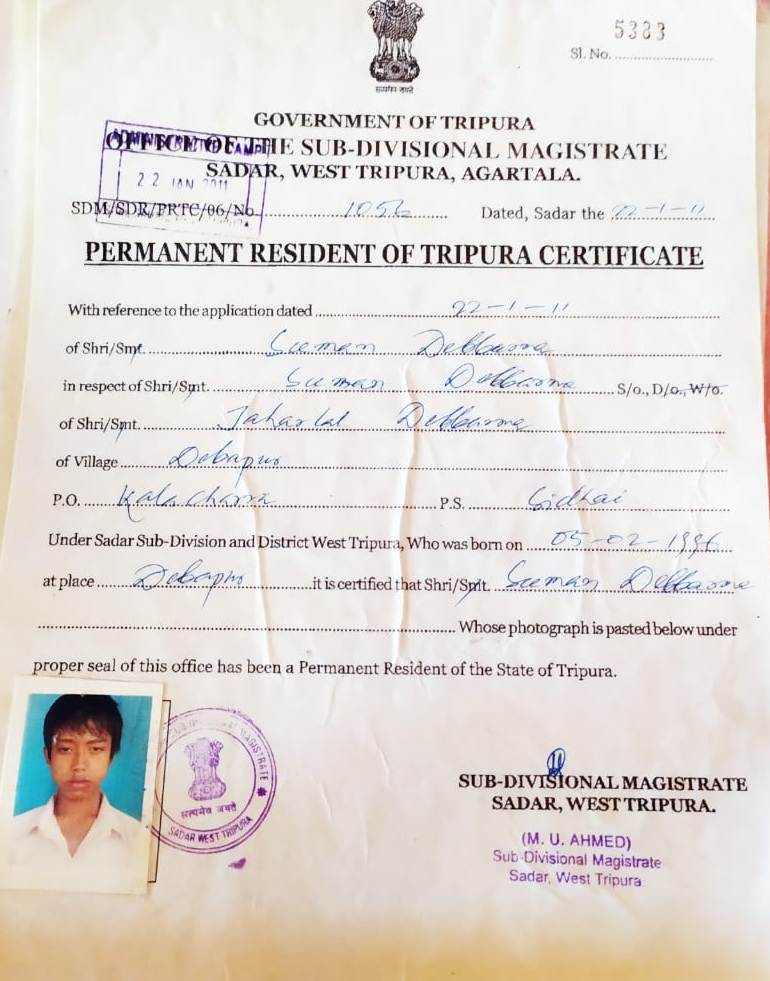 5383
Sl. No. ..................
सत्यमेव जयते
GOVERNMENT OF TRIPURA
OFFICE OF THE SUB-DIVISIONAL MAGISTRATE
SADAR, WEST TRIPURA, AGARTALA.
CAMP
22 JAN 2011
SDM/SDR/PRTC/06/No. 1056 Dated, Sadar the 22-1-11
PERMANENT RESIDENT OF TRIPURA CERTIFICATE
With reference to the application dated 22-1-11
of Shri/Smt. Suman Debbarma
in respect of Shri/Smt. Suman Debbarma S/o., D/o., W/o.
of Shri/Smt. Jaharlal Debbarma
of Village Debapur
P.O. Kalachara P.S. Sidhai
Under Sadar Sub-Division and District West Tripura, Who was born on 05-02-1996
at place Debapur it is certified that Shri/Smt. Suman Debbarma
Whose photograph is pasted below under
proper seal of this office has been a Permanent Resident of the State of Tripura.
SUB-DIVISIONAL MAGISTRATE
सत्यमेव जयते
SADAR WEST TRIPURA
SUB-DIVISIONAL MAGISTRATE
SADAR, WEST TRIPURA.
(M. U. AHMED)
Sub-Divisional Magistrate
Sadar, West Tripura